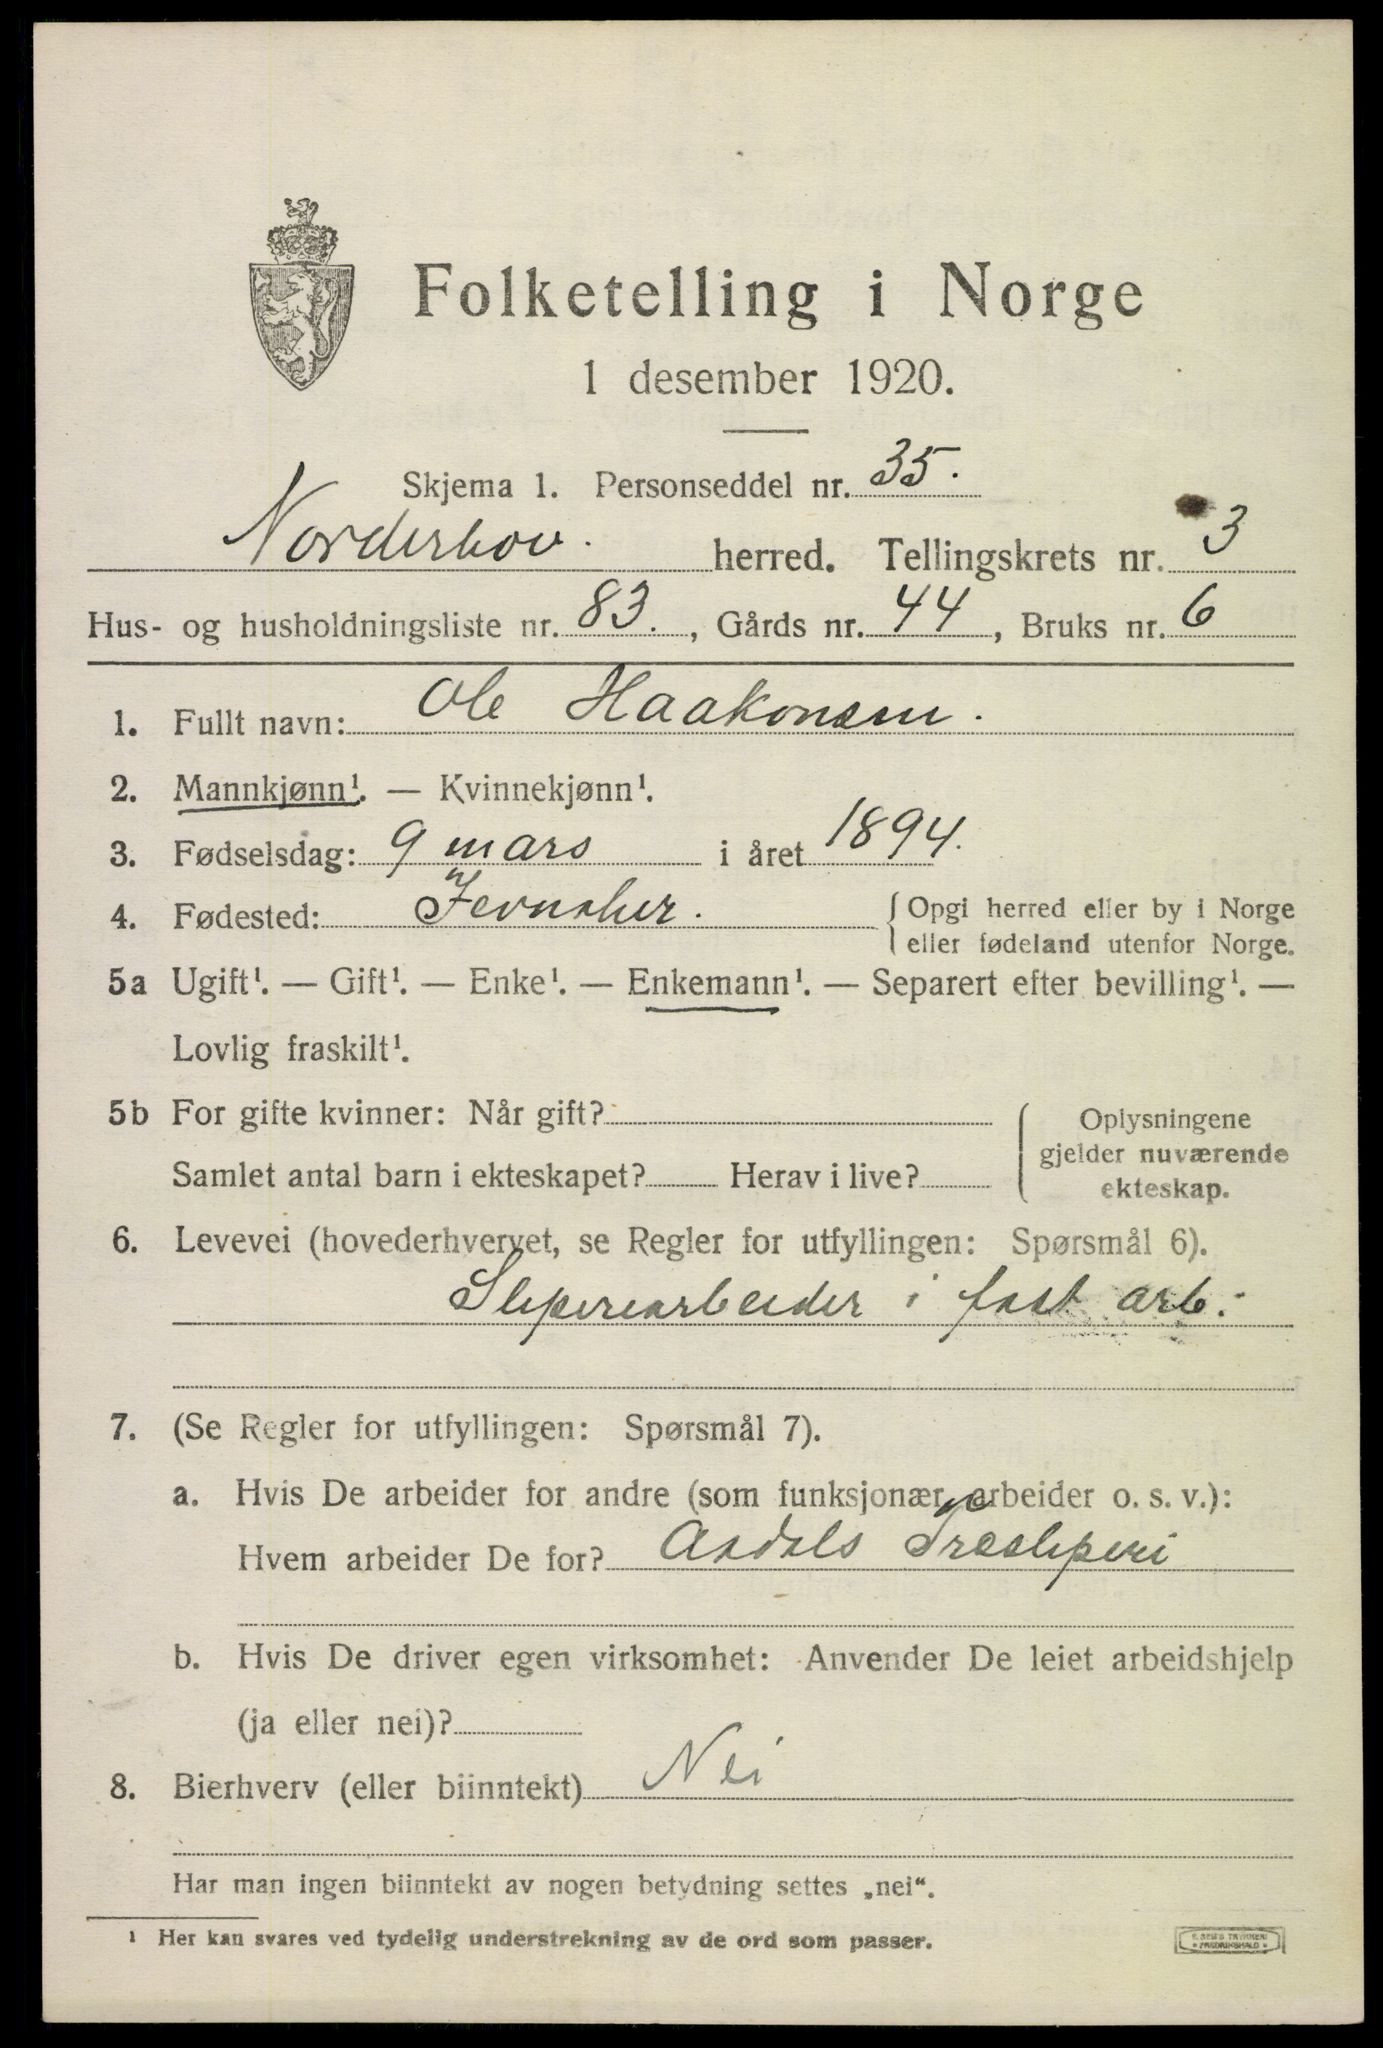 Folketelling i Norge
1 desember 1920.
Skjema 1. Personseddel nr. 35.
Norderhov. herred. Tellingskrets nr. 3
Hus- og husholdningsliste nr. 83. , Gårds nr. 44 , Bruks nr. 6
1. Fullt navn: Ole Haakonsen.
2. Mannkjønn¹. — Kvinnekjønn¹.
3. Fødselsdag: 9 mars i året 1894.
4. Fødested: Jevnaker. { Opgi herred eller by i Norge
eller fødeland utenfor Norge.
5a Ugift¹. — Gift¹. — Enke¹. — Enkemann¹. — Separert efter bevilling¹. —
Lovlig fraskilt¹.
5b For gifte kvinner: Når gift? Oplysningene
gjelder nuværende
Samlet antal barn i ekteskapet? Herav i live? ekteskap.
6. Levevei (hovederhvervet, se Regler for utfyllingen: Spørsmål 6).
Sliperiarbeider i fast arb.
7. (Se Regler for utfyllingen: Spørsmål 7).
a. Hvis De arbeider for andre (som funksjonær, arbeider o. s. v.):
Hvem arbeider De for? Aadals Træsliperi
b. Hvis De driver egen virksomhet: Anvender De leiet arbeidshjelp
(ja eller nei)?
8. Bierhverv (eller biinntekt) Nei
Har man ingen biinntekt av nogen betydning settes „nei".
¹ Her kan svares ved tydelig understrekning av de ord som passer.